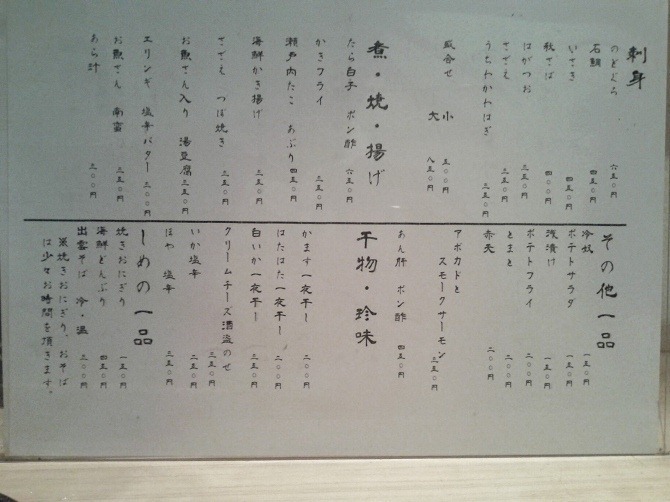 刺身
のどぐろ 六五〇円
石鯛 四五〇円
いさき 四五〇円
秋さば 四〇〇円
はがつお 三五〇円
さざえ 三五〇円
うちわかわはぎ 三五〇円
盛合せ 小 五〇〇円
大 八五〇円
煮・焼・揚げ
たら白子 ポン酢 六五〇円
かきフライ 三五〇円
瀬戸内たこ あぶり 四五〇円
海鮮かき揚げ 三五〇円
さざえ つぼ焼き 三五〇円
お魚さん入り 湯豆腐 三五〇円
エリンギ 塩辛バター 三〇〇円
お魚さん 南蛮 三五〇円
あら汁 三〇〇円
その他一品
冷奴 一五〇円
ポテトサラダ 一五〇円
浅漬け 一五〇円
ポテトフライ 二〇〇円
とまと 二〇〇円
赤天 二〇〇円
アボカドと
スモークサーモン 三五〇円
あん肝 ポン酢 四五〇円
干物・珍味
かます一夜干し 二〇〇円
はたはた一夜干し 二〇〇円
白いか一夜干し 三五〇円
クリームチーズ酒盗のせ 三五〇円
いか塩辛 二五〇円
ほや 塩辛 三五〇円
しめの一品
焼きおにぎり 一五〇円
海鮮どんぶり 四五〇円
出雲そば 冷・温 二〇〇円
焼きおにぎり、おそば
は少々お時間を頂きます。